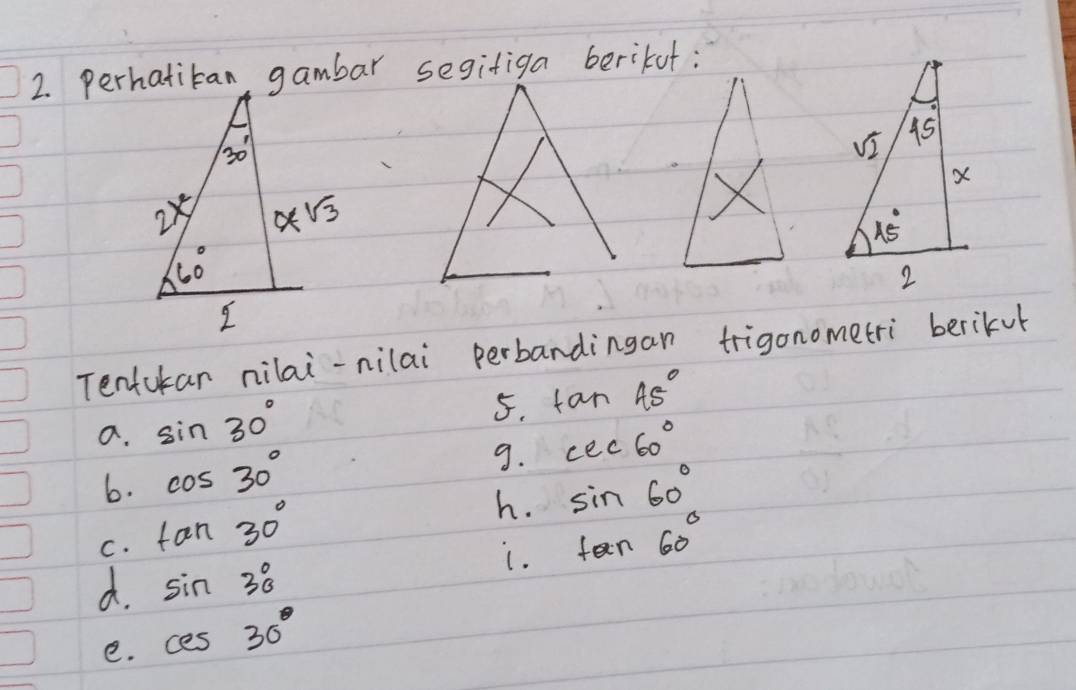 2. perhatikan gambar segitiga berikut:
30°
2x
x√3
60°
45°
x
45°
2
Tentukan nilai-nilai perbandingan trigonometri berikut
a. sin 30°
b. cos 30°
c. tan 30°
d. sin 30°
e. ces 30°
5. tan 45°
g. cec 60°
h. sin 60°
i. tan 60°